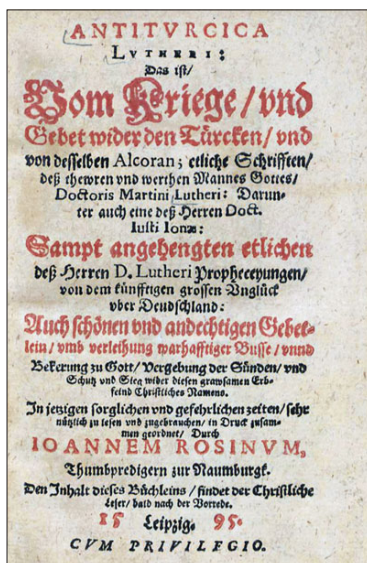 ANTITVRCICA
LVTHERI:
Das ist/
Vom Kriege/ vnd
Gebet wider den Türcken/ vnd
von desselben Alcoran; etliche Schrifften/
deß thewren vnd werthen Mannes Gottes/
Doctoris Martini Lutheri: Darun-
ter auch eine deß Herren Doct.
Iusti Ionæ:
Sampt angehengten etlichen
deß Herren D. Lutheri Propheceyungen/
von dem künfftigen grossen Vnglück
vber Deudschland:
Auch schönen vnd andechtigen Gebet-
lein/ vmb verleihung warhafftiger Busse/ vnnd
Bekerung zu Gott/ Vergebung der Sünden/ vnd
Schutz vnd Sieg wider diesen grawsamen Erb-
feind Christliches Namens.
In jetzigen sorglichen vnd gefehrlichen zeiten/ sehr
nützlich zu lesen vnd zugebrauchen/ in Druck zusam-
men geordnet/ Durch
IOANNEM ROSINVM,
Thumbpredigern zur Naumburgk.
Den Inhalt dieses Büchleins/ findet der Christliche
Leser/ bald nach der Vorrede.
15 Leipzig. 95.
CVM PRIVILEGIO.